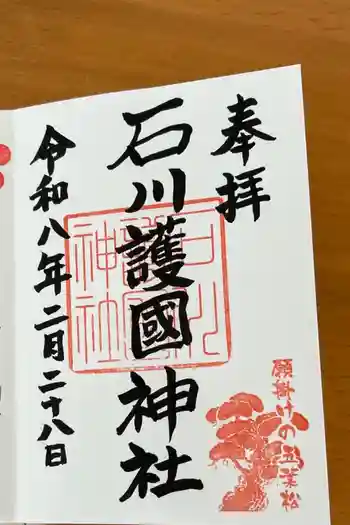 奉拝
石川護國神社
令和八年二月二十八日
願掛けの五葉松